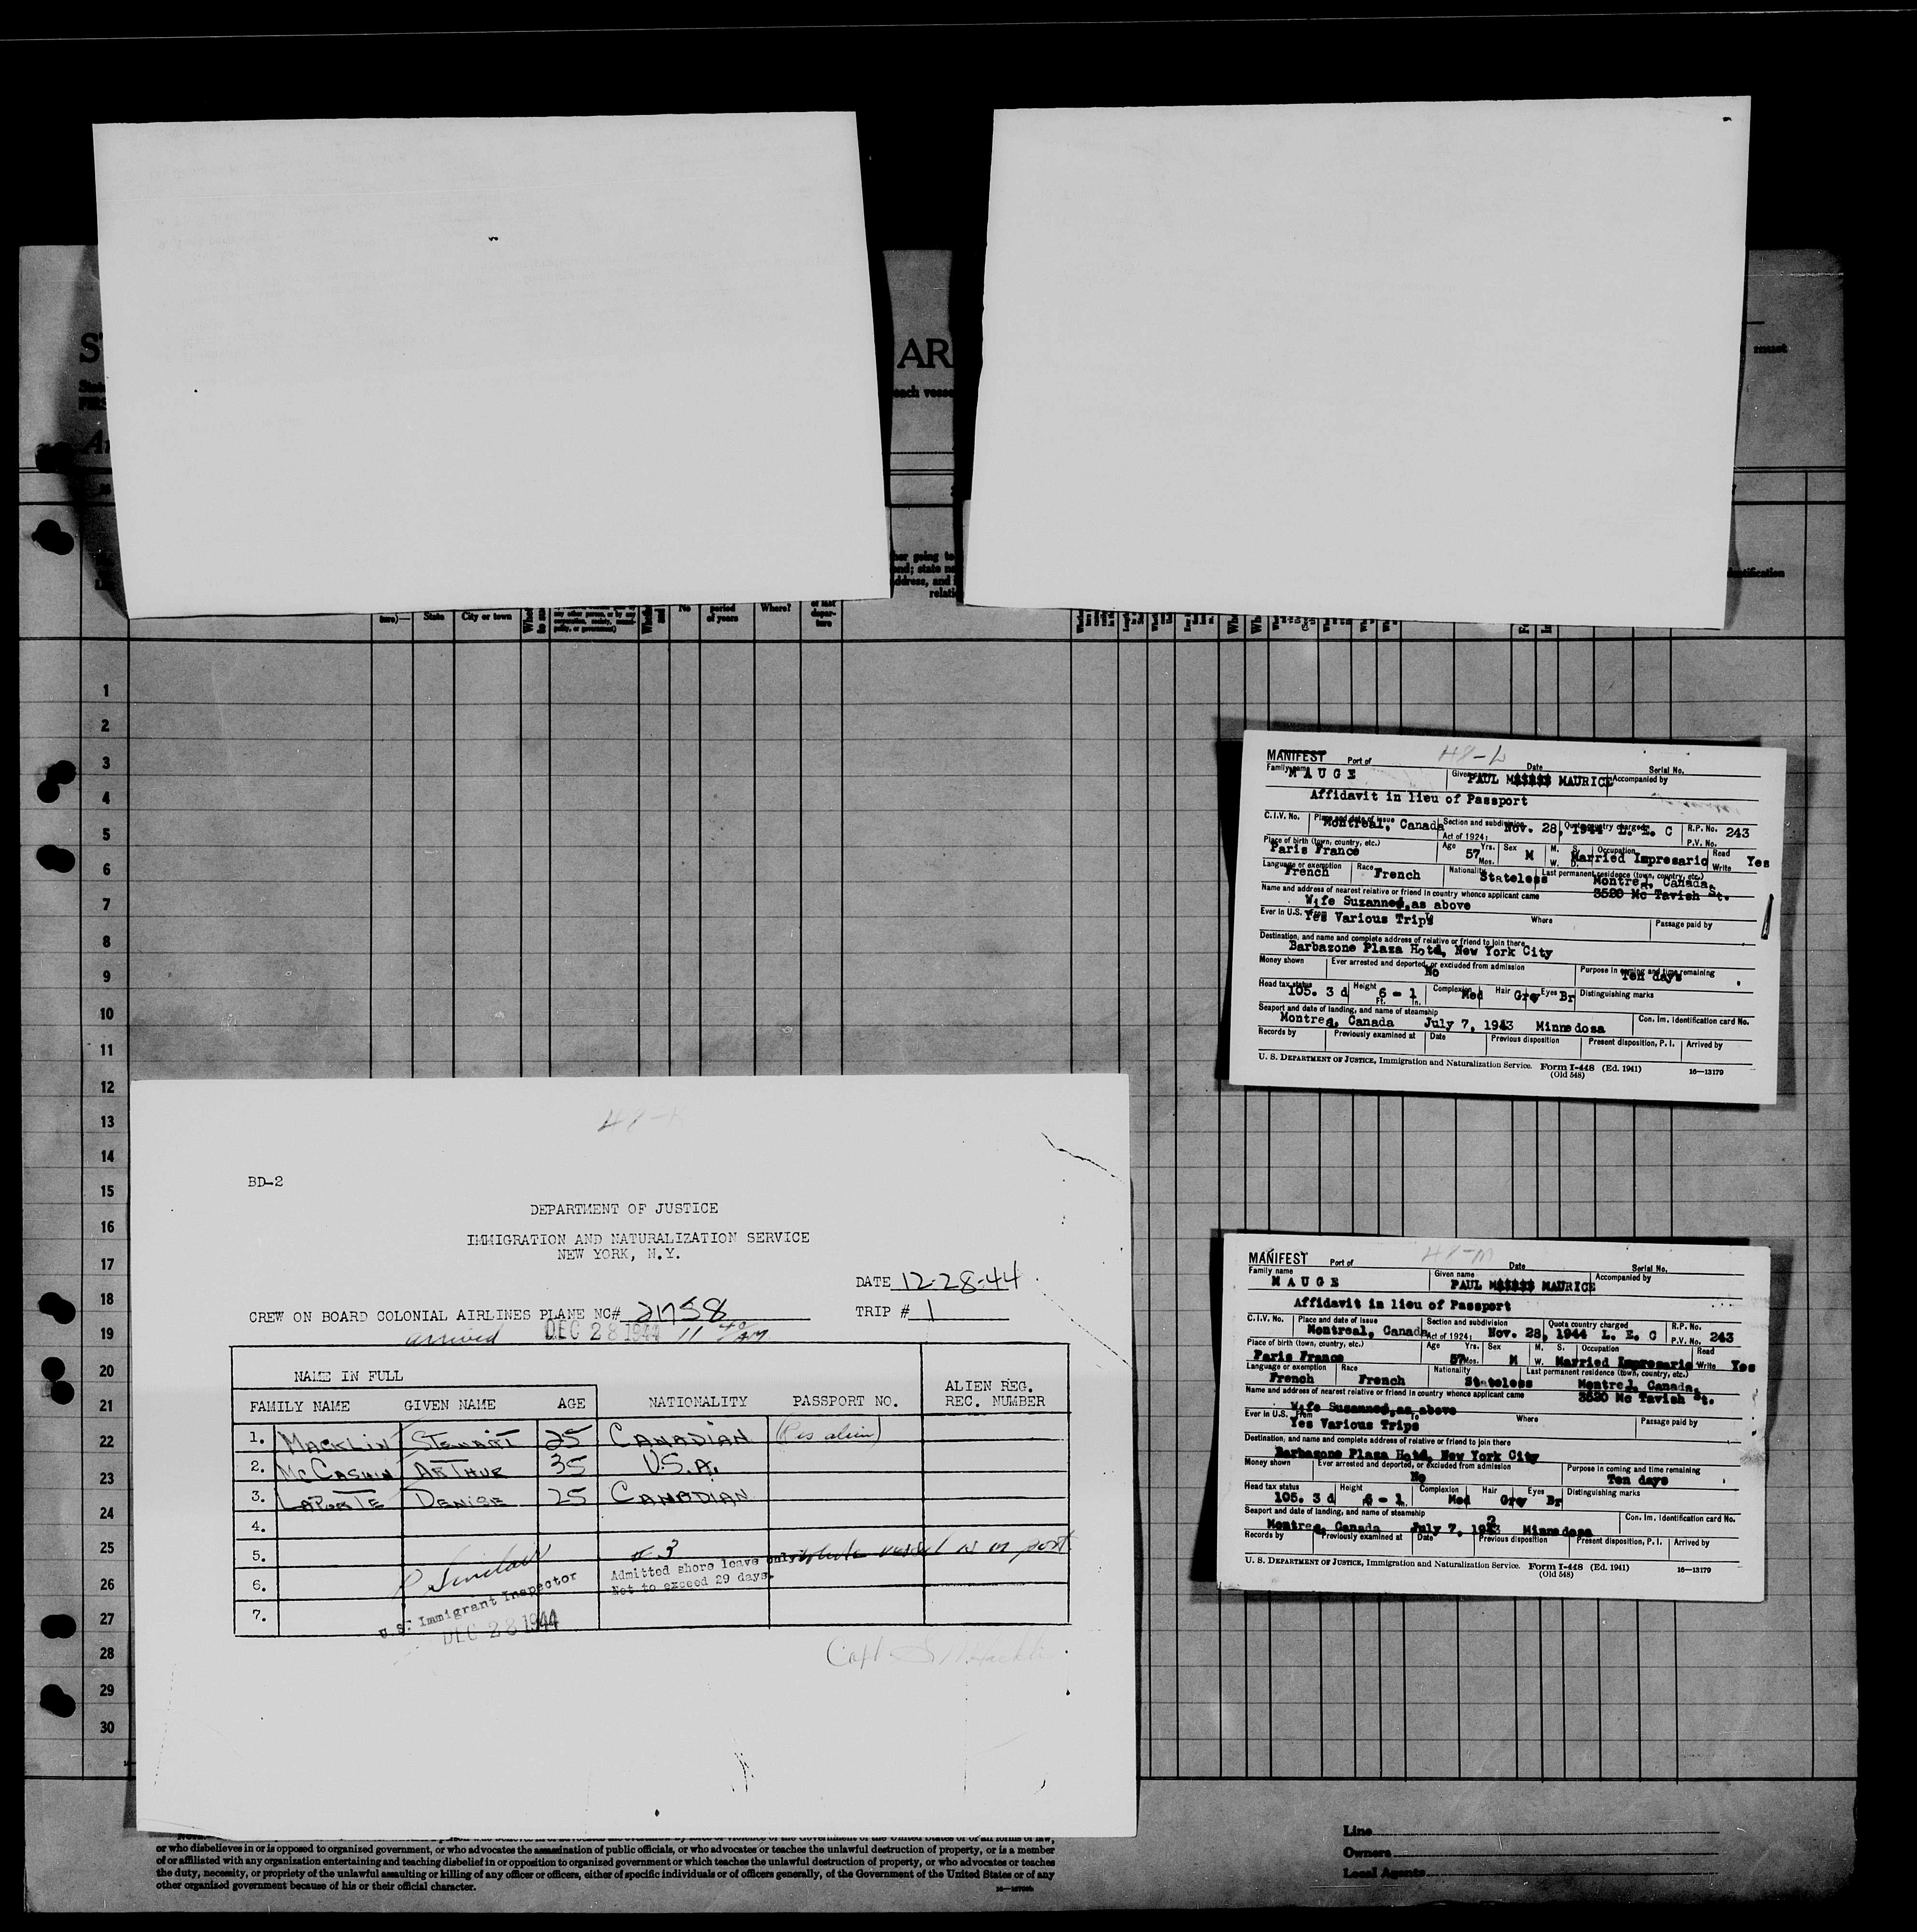 AR
must
each vesse
ture)—
State
City or town
No
period
of years
Where?
of last
depar-
ture
1
2
3
4
5
6
7
8
9
10
11
12
13
14
15
16
17
18
19
20
21
22
23
24
25
26
27
28
29
30
MANIFEST Port of Date Serial No.
Family name MAUGE Given name PAUL MAURICE Accompanied by
Affidavit in lieu of Passport
C.I.V. No. Place and date of issue Montreal, Canada Section and subdivision Act of 1924: Nov. 28, 1944 Quota country charged L. E. C R.P. No. P.V. No. 243
Place of birth (town, country, etc.) Paris France Age 57 Yrs. Mos. Sex M M. S. W. D. Married Occupation Impresario Read Write Yes
Language or exemption French Race French Nationality Stateless Last permanent residence (town, country, etc.) Montreal, Canada,
Name and address of nearest relative or friend in country whence applicant came 3520 Mc Tavish St.
Wife Suzanne, as above
Ever in U.S. From Yes Various Trips Where Passage paid by
Destination, and name and complete address of relative or friend to join there
Barbazone Plaza Hotel, New York City
Money shown Ever arrested and deported, or excluded from admission No Purpose in coming and time remaining Ten days
Head tax status 105. 3 d Height 6 - 1 Ft. In. Complexion Med Hair Grey Eyes Br Distinguishing marks
Seaport and date of landing, and name of steamship
Montreal, Canada July 7, 1943 Minnedosa Con. Im. Identification card No.
Records by Previously examined at Date Previous disposition Present disposition, P. I. Arrived by
U. S. DEPARTMENT OF JUSTICE, Immigration and Naturalization Service. Form I-448 (Ed. 1941) 16—13179
(Old 548)
BD-2
DEPARTMENT OF JUSTICE
IMMIGRATION AND NATURALIZATION SERVICE
NEW YORK, N.Y.
DATE 12-28-44
CREW ON BOARD COLONIAL AIRLINES PLANE NC# 21758 TRIP # 1
arrived DEC 28 1944 11 40 AM
NAME IN FULL
FAMILY NAME GIVEN NAME AGE NATIONALITY PASSPORT NO. ALIEN REG. REC. NUMBER
1. MACKLIN STEWART 25 CANADIAN (Res alien)
2. McCASHIN ARTHUR 35 U.S.A.
3. LAPORTE DENISE 25 CANADIAN
4.
5. #3
Admitted shore leave only while vessel is in port
Not to exceed 29 days.
6. P Sinclair
U.S. Immigrant Inspector
7. DEC 28 1944
Capt S Macklin
MANIFEST Port of Date Serial No.
Family name MAUGE Given name PAUL MAURICE Accompanied by
Affidavit in lieu of Passport
C.I.V. No. Place and date of issue Montreal, Canada Section and subdivision Act of 1924: Nov. 28, 1944 Quota country charged L. E. C R.P. No. P.V. No. 243
Place of birth (town, country, etc.) Paris France Age 57 Yrs. Mos. Sex M M. S. W. Married Occupation Impresario Read Write Yes
Language or exemption French Race French Nationality Stateless Last permanent residence (town, country, etc.) Montreal, Canada,
Name and address of nearest relative or friend in country whence applicant came 3520 Mc Tavish St.
Wife Suzanne, as above
Ever in U.S. From To Yes Various Trips Where Passage paid by
Destination, and name and complete address of relative or friend to join there
Barbazone Plaza Hotel, New York City
Money shown Ever arrested and deported, or excluded from admission No Purpose in coming and time remaining Ten days
Head tax status 105. 3 d Height 6 - 1 Complexion Med Hair Grey Eyes Br Distinguishing marks
Seaport and date of landing, and name of steamship
Montreal, Canada July 7, 192 Minnedosa Con. Im. Identification card No.
Records by Previously examined at Date Previous disposition Present disposition, P. I. Arrived by
U. S. DEPARTMENT OF JUSTICE, Immigration and Naturalization Service. Form I-448 (Ed. 1941) 16—13179
(Old 548)
or who disbelieves in or is opposed to organized government, or who advocates the assassination of public officials, or who advocates or teaches the unlawful destruction of property, or is a member
of or affiliated with any organization entertaining and teaching disbelief in or opposition to organized government or which teaches the unlawful destruction of property, or who advocates or teaches
the duty, necessity, or propriety of the unlawful assaulting or killing of any officer or officers, either of specific individuals or of officers generally, of the Government of the United States or of any
other organized government because of his or their official character.
Line
Owners
Local Agents